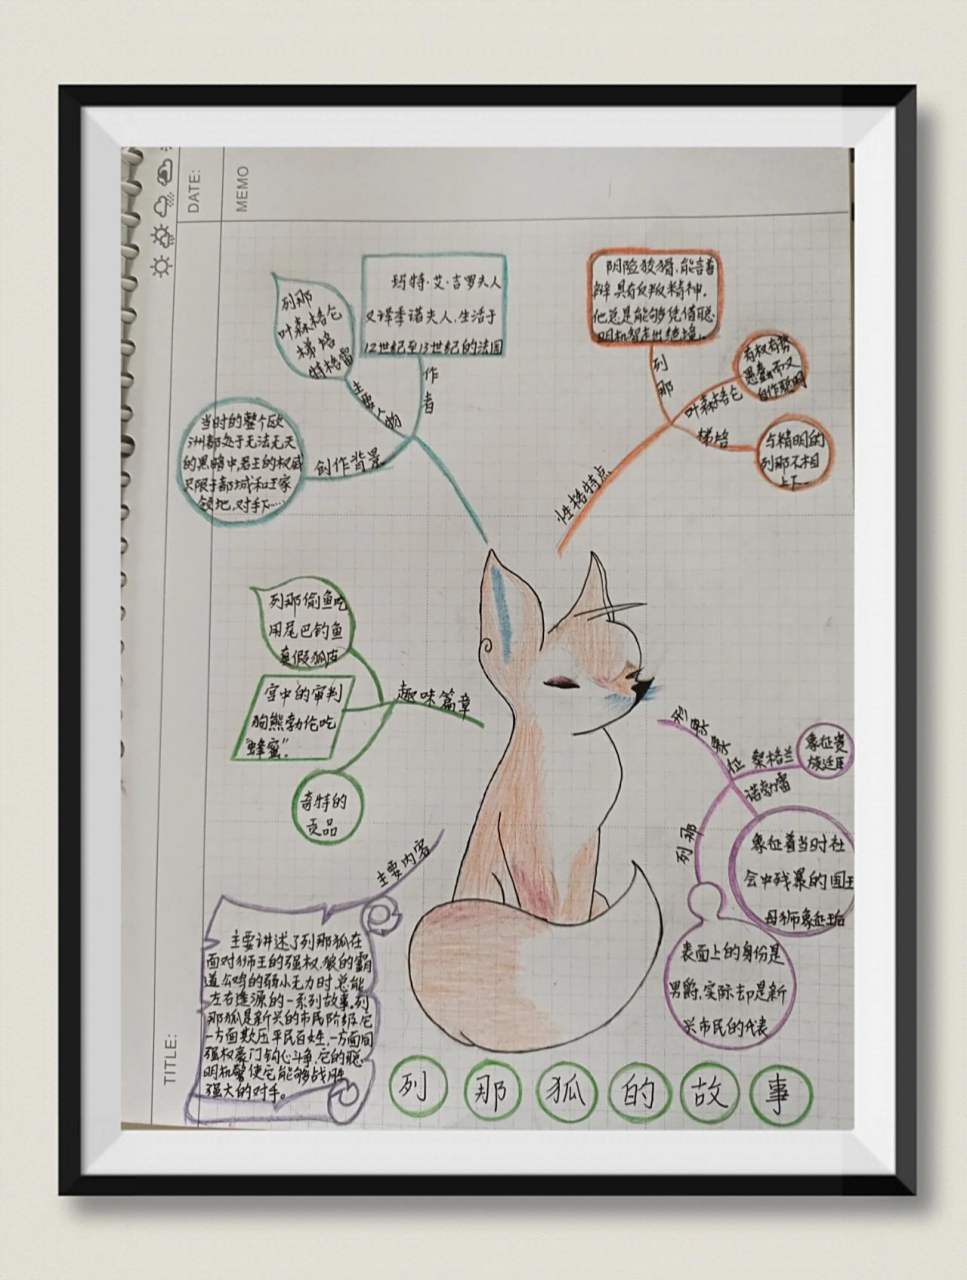 DATE:
MEMO
TITLE:
列那
叶森格仑
梯培
特格雷
主要人物
玛特·艾·吉罗夫人
又译季诺夫人,生活于
12世纪至13世纪的法国
作者
当时的整个欧
洲都处于无法无天
的黑暗中,君王的权威
只限于都城和王家
领地,对手下……
创作背景
阴险狡猾,能言善
辩具有反叛精神。
他总是能够凭借聪
明机智走出绝境。
列那
有权有势
愚蠢而又
自作聪明
叶森格仑
与精明的
列那不相
上下
梯培
性格特点
列那偷鱼吃
用尾巴钓鱼
真假狐皮
空中的审判
狗熊勃伦吃
“蜂蜜”.
奇特的
贡品
趣味篇章
形象象征
象征贵
族廷臣
桑格兰
诺勃雷
象征着当时社
会中残暴的国王
母狮象征王后
列那
表面上的身份是
男爵,实际却是新
兴市民的代表
主要内容
主要讲述了列那狐在
面对狮王的强权,狼的霸
道公鸡的弱小无力时总能
左右逢源的一系列故事。列
那狐是新兴的市民阶级,它
一方面欺压平民百姓,一方面同
强权豪门勾心斗争,它的聪
明机智使它能够战胜
强大的对手。
列那狐的故事